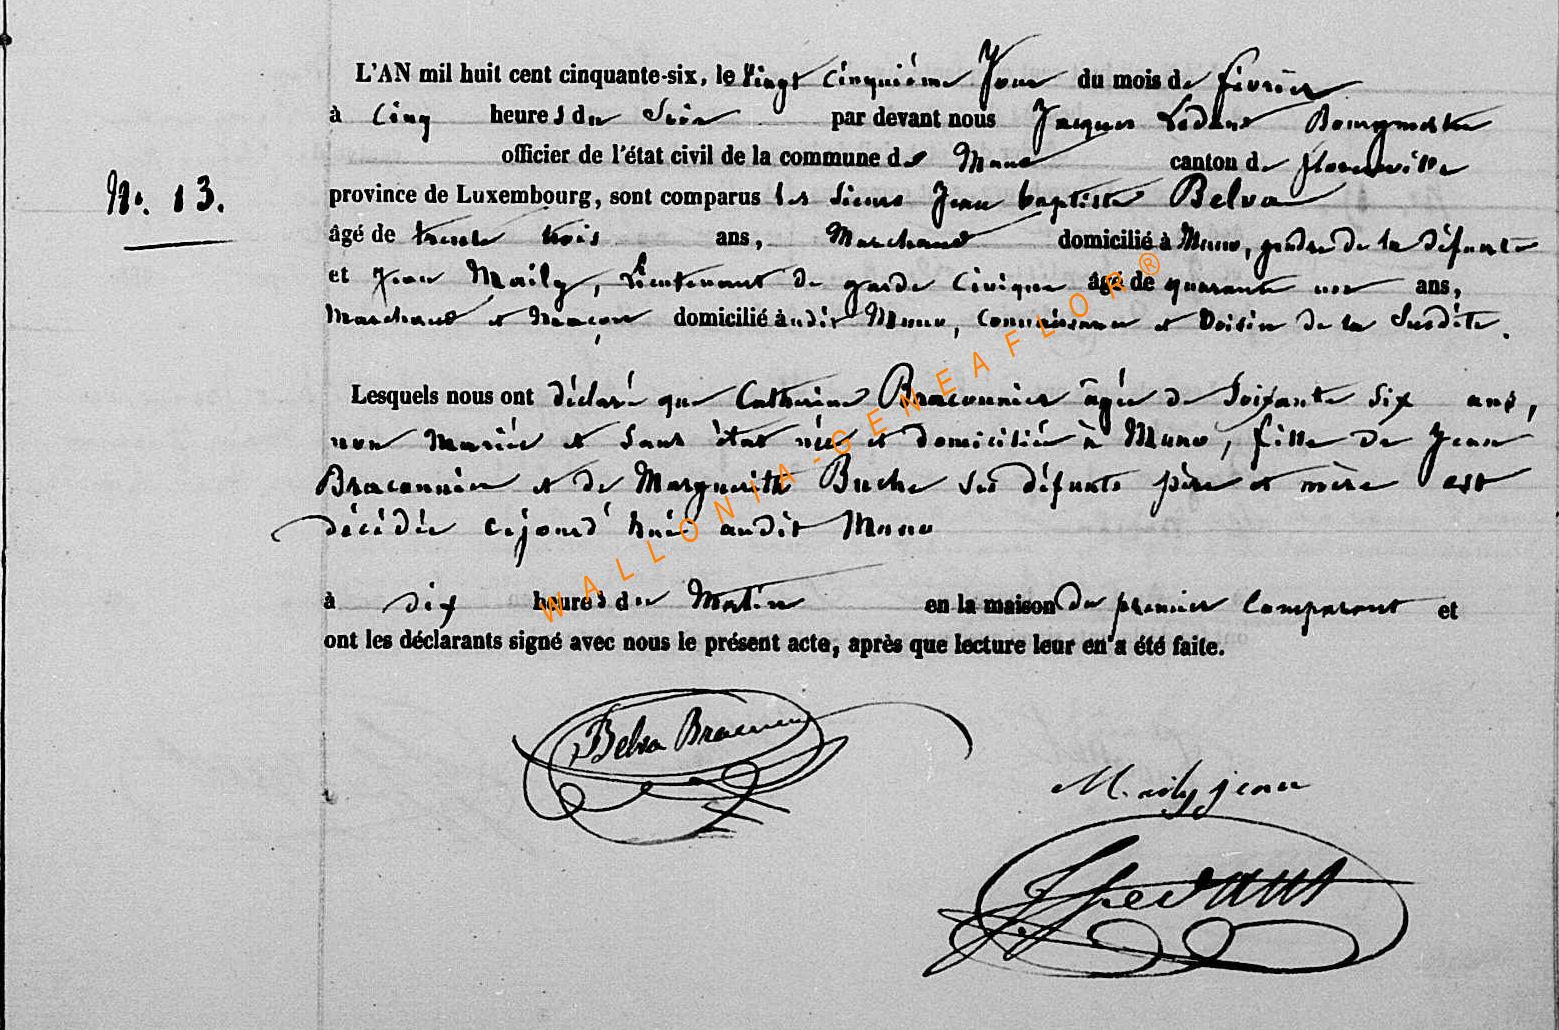 L'AN mil huit cent cinquante-six, le vingt cinquième Jour du mois de février
à cinq heures du Soir par devant nous Jacques Ledant Bourgmestre
officier de l'état civil de la commune de Muno canton de florenville
N.º 13.
province de Luxembourg, sont comparus les Sieurs Jean baptiste Belva
âgé de trente trois ans, Marchand domicilié à Muno, gendre de la défunte
et Jean Maily, Lieutenant de garde Civique âgé de quarante neuf ans,
Marchand et Maçon domicilié audit Muno, Connaissance et Voisin de la Susdite.
Lesquels nous ont déclaré que Catherine Braconnier âgée de Soixante Six ans,
non Mariée et Sans état née et domiciliée à Muno, fille de Jean
Braconnier et de Marguerite Buche Ses défunts père et mère est
décédée cejourd'hui audit Muno
à dix heures du Matin en la maison du premier Comparant et
ont les déclarants signé avec nous le présent acte, après que lecture leur en a été faite.
Belva Braconnier
Maily jean
J Ledant
WALLONIA-GENEAFLOR®